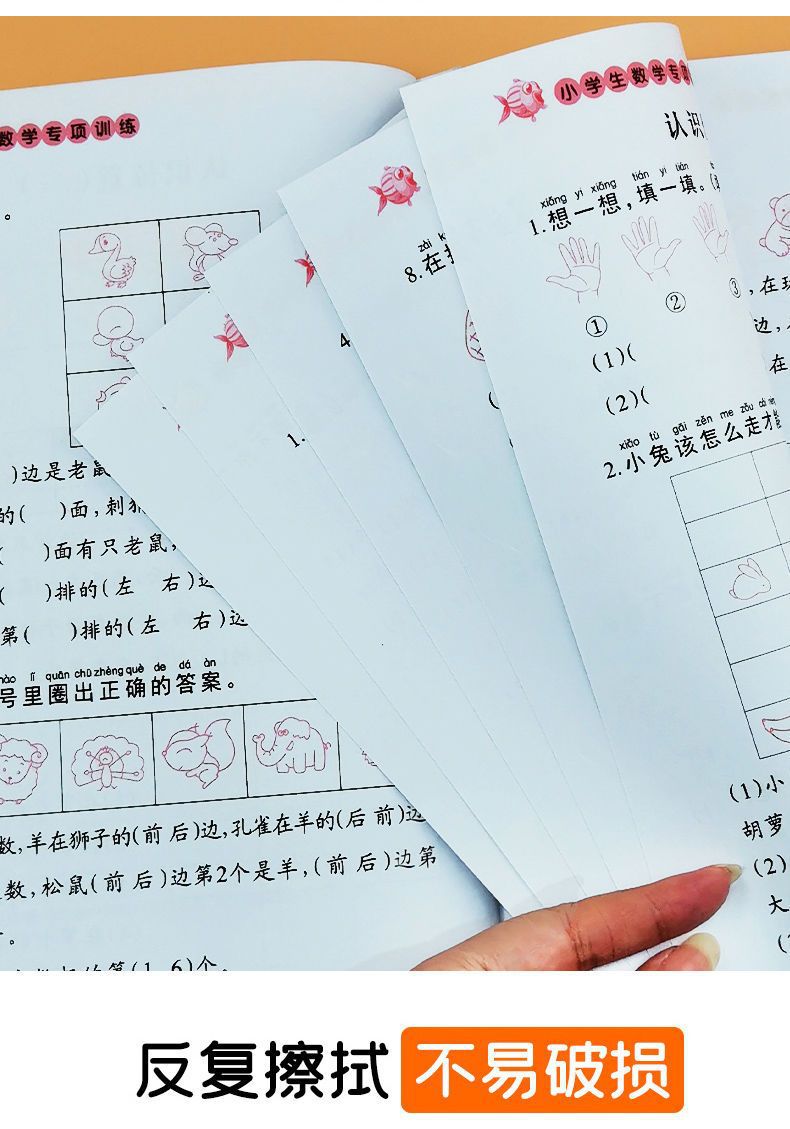 数学专项训练
。
)边是老鼠
的( )面,刺猬
( )面有只老鼠,
( )排的(左 右)边
第( )排的(左 右)边
lǐ quān chū zhèng què de dá àn
号里圈出正确的答案。
数,羊在狮子的(前 后)边,孔雀在羊的(后 前)边
数,松鼠(前 后)边第2个是羊,(前 后)边第
。
第(1 6)个。
1.
4
zài
8.在
小学生数学专项
认识
xiǎng yi xiǎng tián yi tián
1.想一想,填一填。(
① ② ③
(1)(
(2)(
xiǎo tù gāi zěn me zǒu cái néng
2.小兔该怎么走才能
,在玩
边,
在
(1)小
胡萝
(2)
大
(
反复擦拭 不易破损